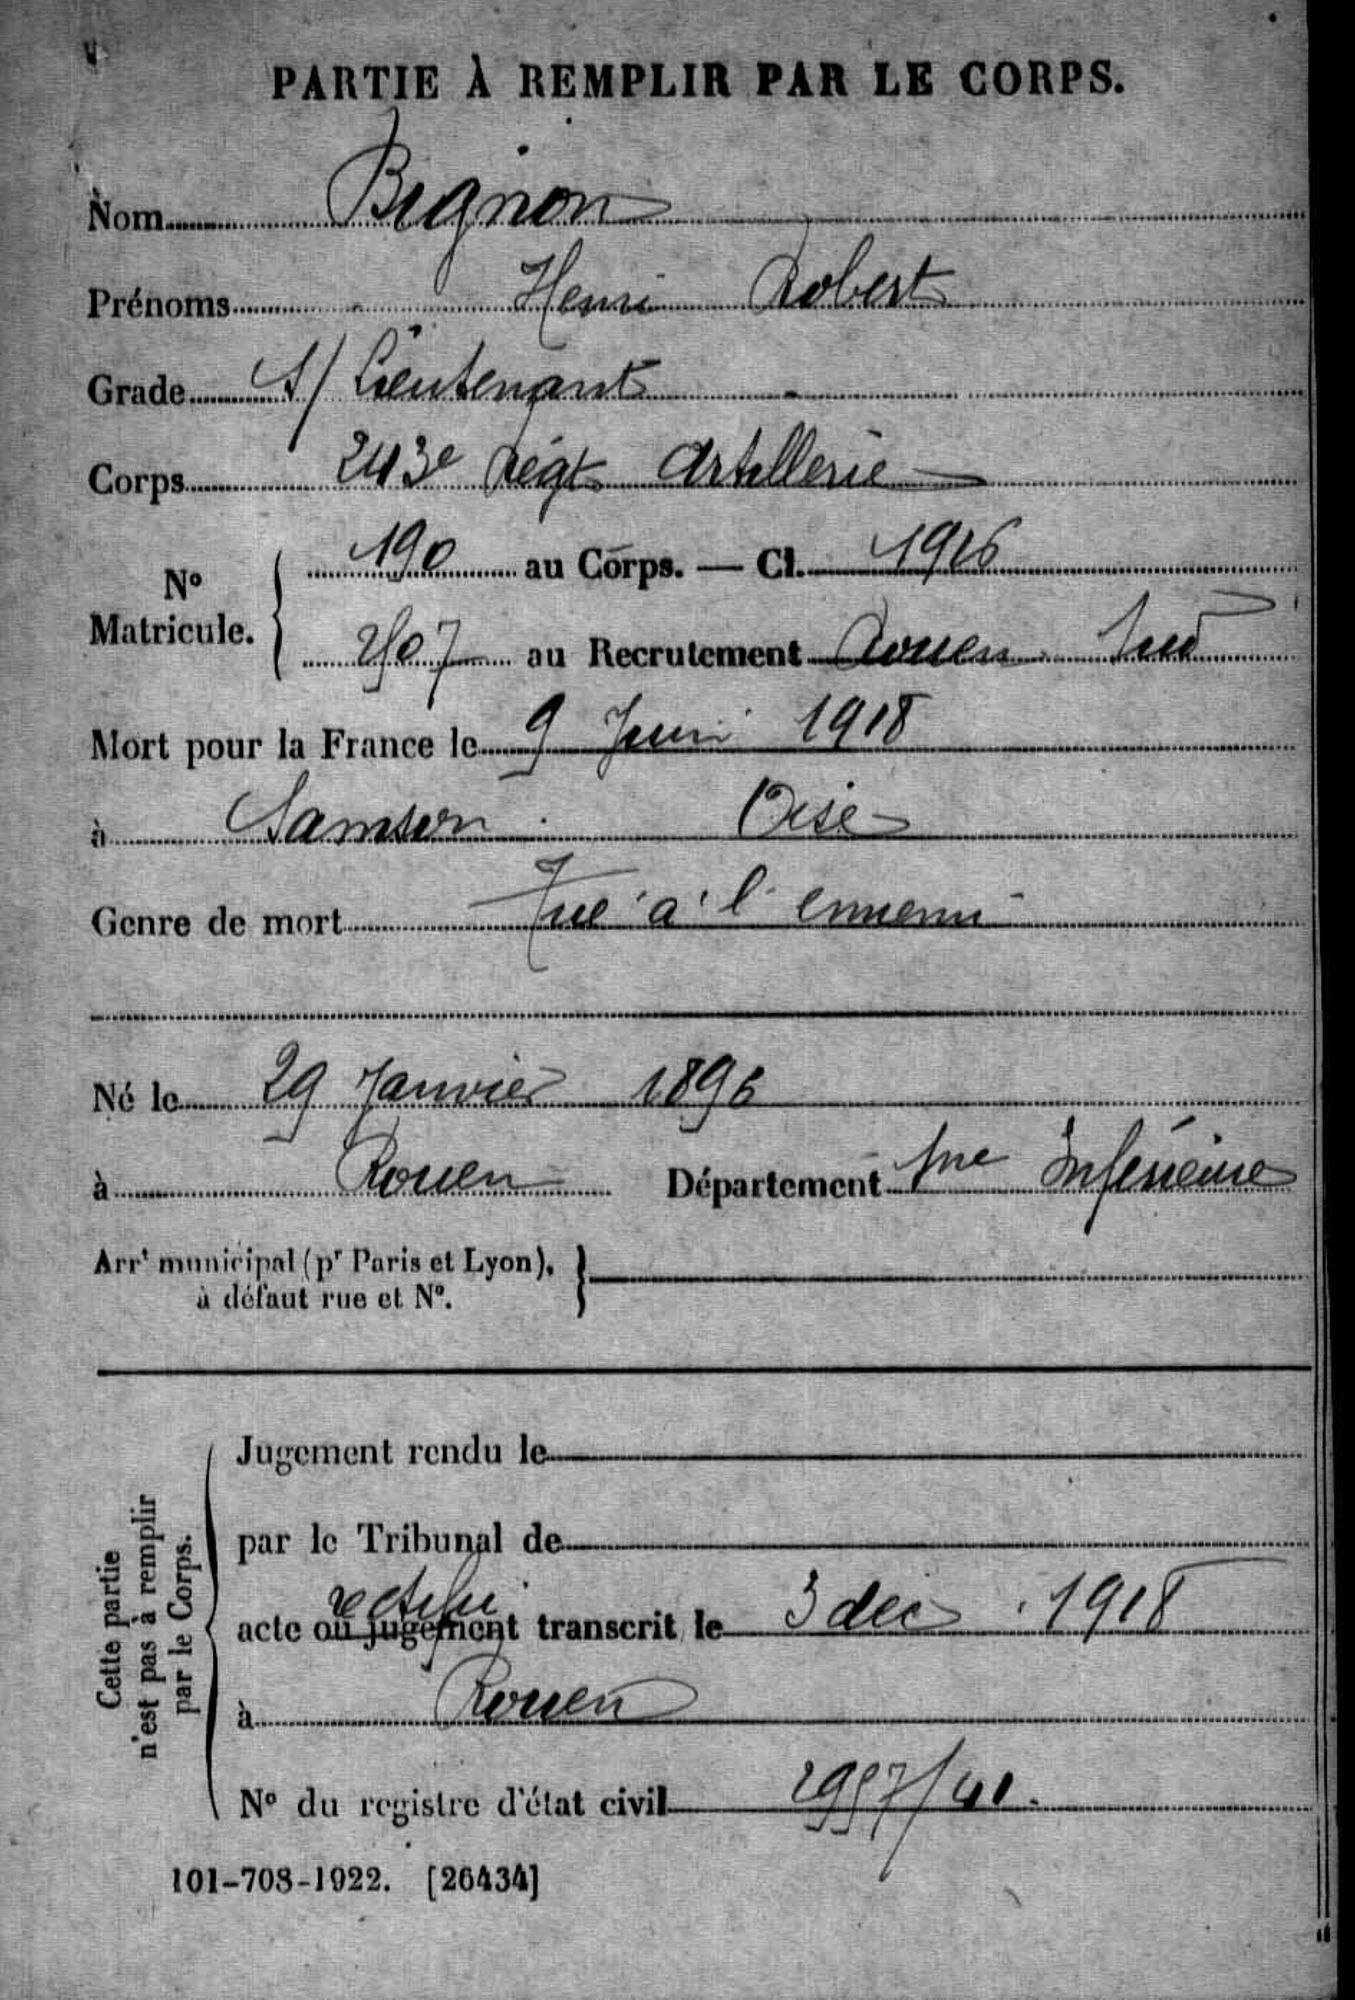 PARTIE À REMPLIR PAR LE CORPS.
Nom Bignon
Prénoms Henri Robert
Grade S/Lieutenant
Corps 243e Régt Artillerie
N° Matricule. 190 au Corps. — Cl. 1916
au Recrutement Rouen Sud
Mort pour la France le 9 Juin 1918
à Samson Oise
Genre de mort Tué à l'ennemi
Né le 29 Janvier 1896
à Rouen Département Sne Inférieure
Arrt municipal (pr Paris et Lyon),
à défaut rue et N°.
Cette partie
n'est pas à remplir
par le Corps.
Jugement rendu le
par le Tribunal de
rectifié
acte ou jugement transcrit le 3 déc 1918
à Rouen
N° du registre d'état civil 2957/41.
101-708-1922. [26434]